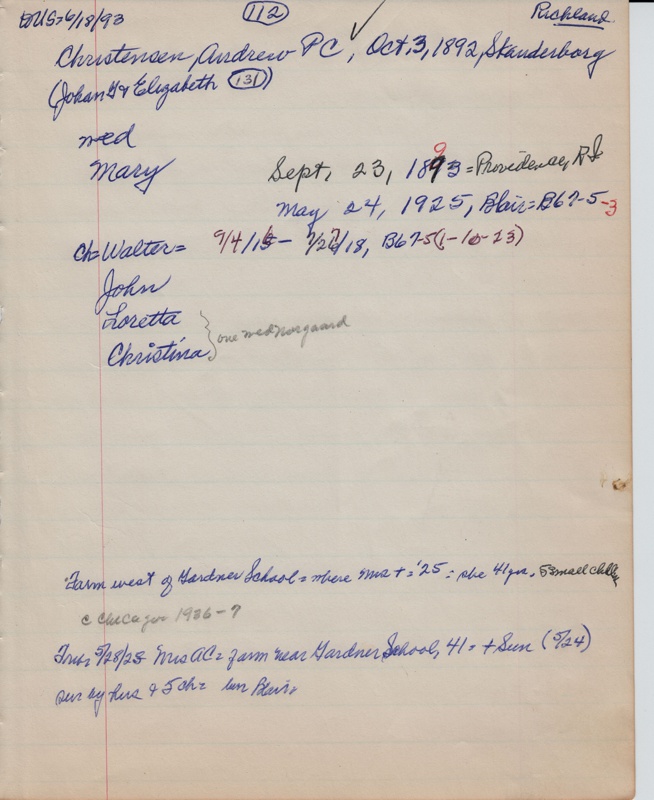 DUS=6/18/93 (112) Richland
Christensen, Andrew P C ✓, Oct. 3, 1892, Skanderborg
(Johan G & Elizabeth (131))
med
Mary Sept. 23, 1893 = Providence, R I 9
May 24, 1925, Blair = B67-5-3
ch = Walter = 9/4/15 - 7/27/18, B67-5(1-10-23)
John
Loretta
Christina } one med Norgaard
Farm west of Gardner School = where Mrs + = '25 = she 41 yrs. 5 small
c Chicago 1936-7
5/28/25 Mrs AC = farm near Gardner School, 41 = + Sun (5/24)
sur by hus & 5 ch = bur Blair =